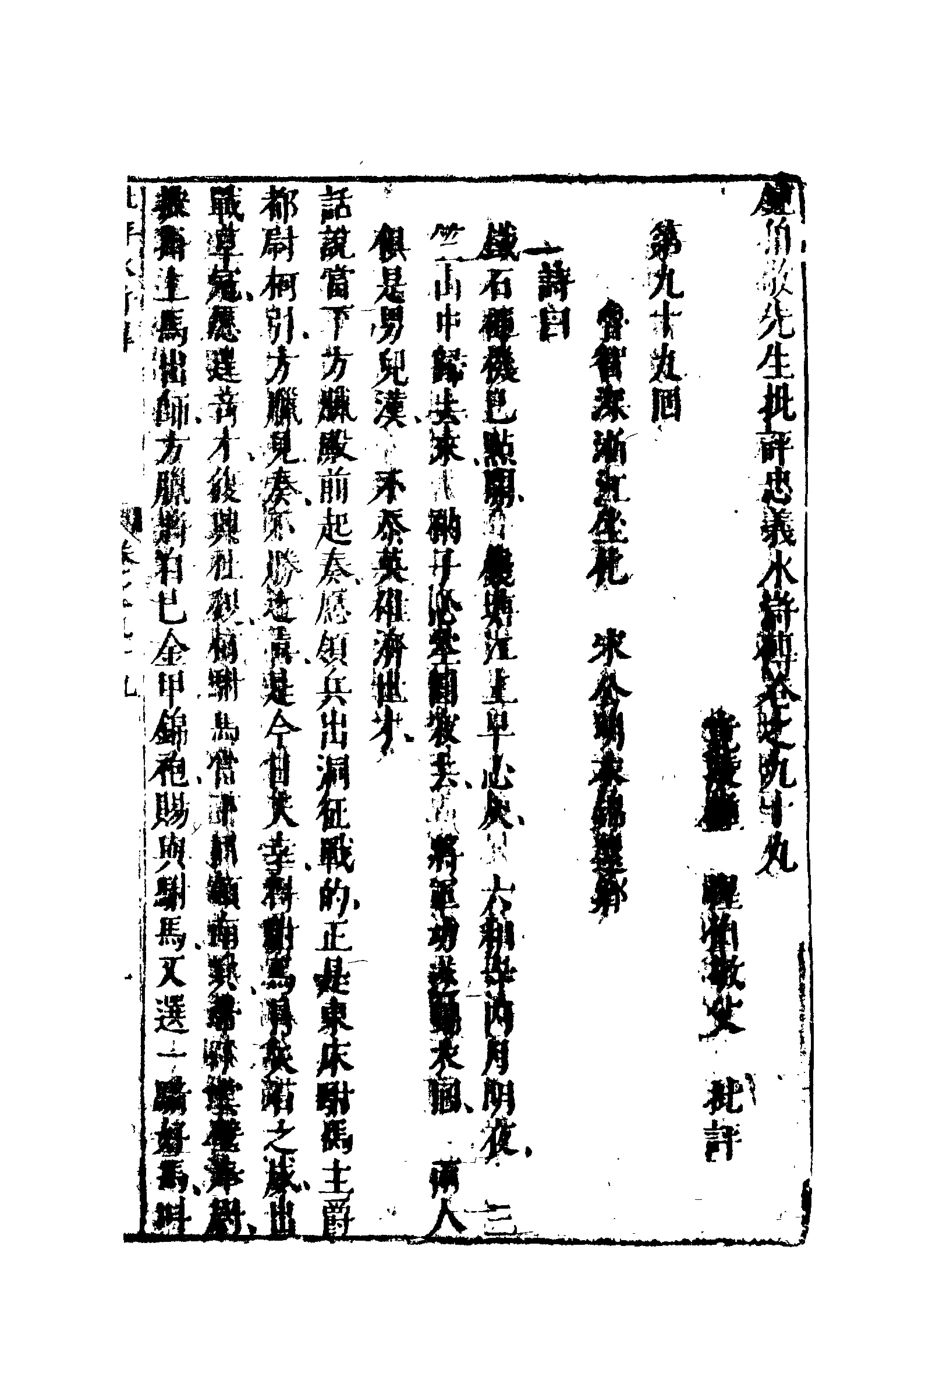 鍾伯敬先生批評忠義水滸傳卷之九十九
竟陵 鍾伯敬父 批評
第九十九回
魯智深浙江坐化 宋公明衣錦還鄉
詩曰
鐵石禪機已點開 錢塘江上早心灰 六和寺內月明夜 三
竺山中歸去來 衲子心空圓寂去 將軍功遂賜衣回 兩人
俱是男兒漢 不忝英雄濟世才
話說當下方臘殿前起奏願領兵出洞征戰的正是東床駙馬主爵
都尉柯引方臘見奏不勝之喜是今日天幸得駙馬 之威出
戰草寇願逞奇才復興社稷柯駙馬當下 領南 尉
披 上馬出師方臘將自己金甲錦袍賜與駙馬又選一騎好馬叫
卷之九十九